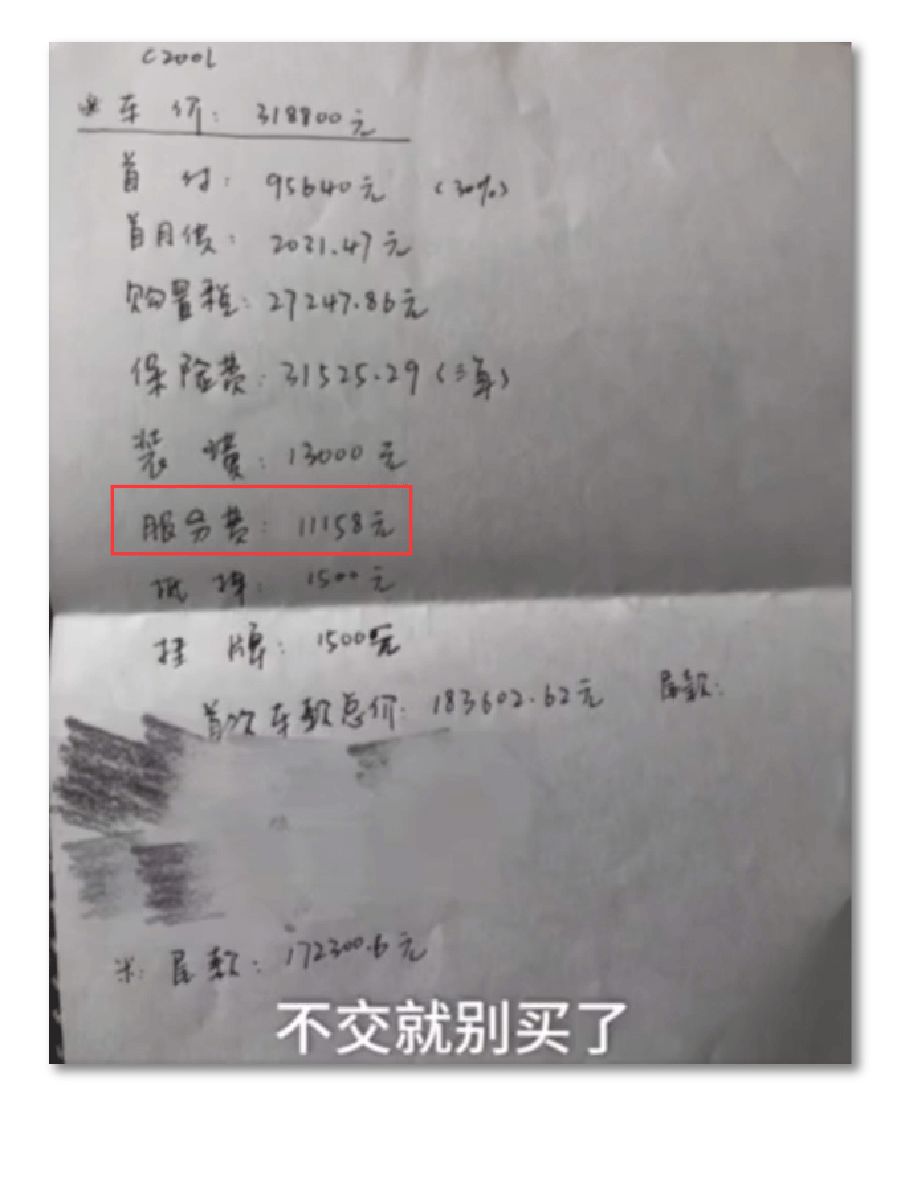 C200L
※车 价：318800元
首 付：95640元 （30%）
首月供：2031.47元
购置税：27247.86元
保险费：31525.29（三年）
装 潢：13000元
服务费：11158元
抵 押：1500元
挂 牌：1500元
首次车款总价：183602.62元 尾款：
米：尾款：172300.6元
不交就别买了